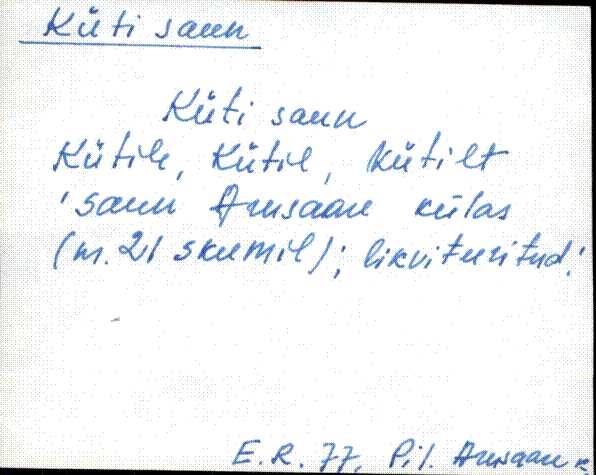 Küti saun
Küti saun
Kütile, Kütil, Kütilt
'saun Arusaare külas
(m. 21 skemil); likvideeritud.'
E.R. 77. Pil. Arusaare k.